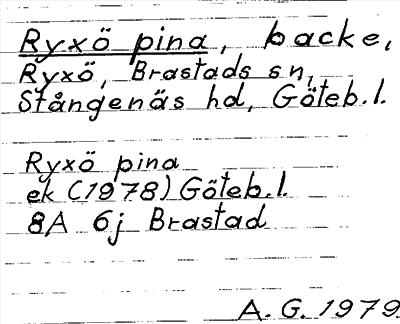 Ryxö pina, backe,
Ryxö, Brastads sn,
Stångenäs hd, Göteb.l.
Ryxö pina
ek (1978) Göteb.l.
8A 6j Brastad
A.G. 1979